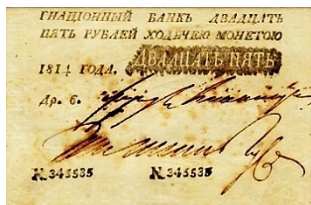 ГНАЦIОННЫЙ БАНКЪ ДВАДЦАТЬ
ПЯТЬ РУБЛЕЙ ХОДЯЧЕЮ МОНЕТОЮ
1814 ГОДА. ДВАДЦАТЬ ПЯТЬ
Др. 6.
N.345535 N.345535